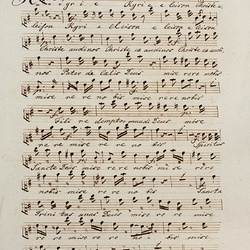 Ky rie Kyri e e leison Christe e
leison Kyri e eleison e leison
Christe audi nos Christe ex audi nos Christe ex audi
nos Pater de Cælis Deus mise rere nobis
mise re re no bis mise rere nobis
Fili re demptor mundi Deus mise
re re mise re re no bis Spiritus
Sancte Deus mise re re nobis mi se rere
nobis mise re re no bis Sancta
Trini tas unus Deus mise re re
re re mise re re no bis